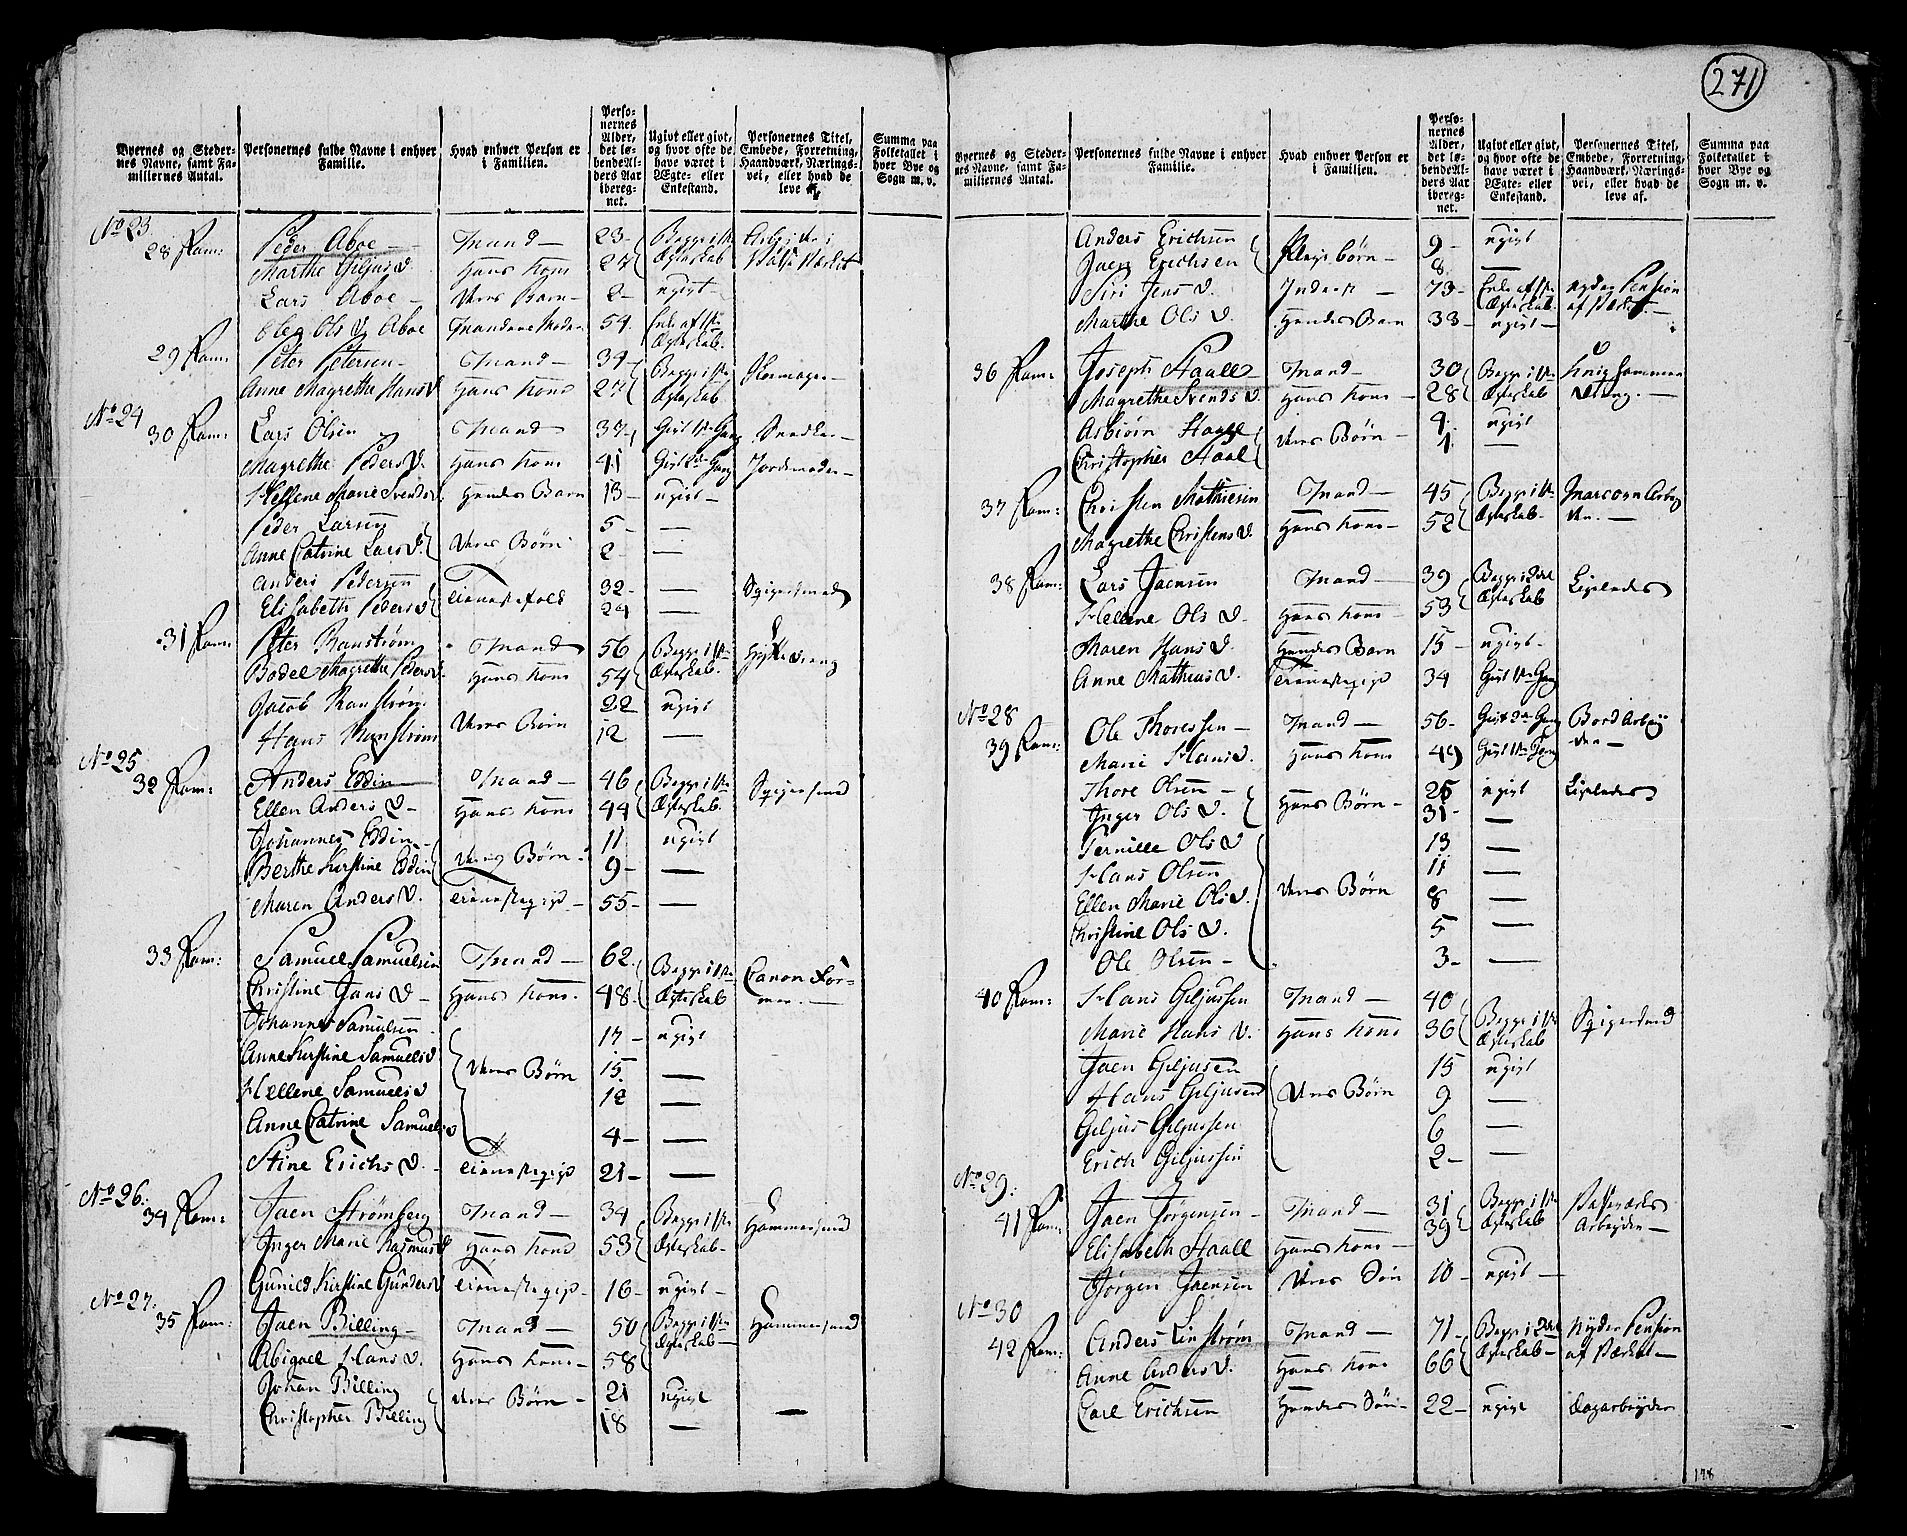 271
Byernes og Stedernes Navne, samt Familiernes Antal.
Personernes fulde Navne i enhver Familie.
Hvad enhver Person er i Familien.
Personernes Alder, det løbende Alders Aar iberegnet.
Ugivt eller givt, og hvor ofte de have været i Ægte- eller Enkestand.
Personernes Titel, Embede, Forretning, Haandværk, Næringsvei, eller hvad de leve af.
Summa paa Folketallet i hver Bye og Sogn m. v.
No 23
28 Fam: Peder Aboe Mand 23 Begge i 1ste Ægteskab
Marthe Giljus D. Hans Kone 27
Lars Aboe Deres Barn 2 ugivt
Ols D. Aboe Mandens Moder 54 Enke af 1ste Ægteskab
29 Fam: Peter Petersen Mand 34 Begge i 1ste Ægteskab Skomager
Anne Magrethe Hans D Hans Kone 27
No 24
30 Fam: Lars Olsen Mand 37 Gift 1ste Gang Snedker
Magrethe Peders D. Hans Kone 41 Gift 2den Gang Jordemoder
Hellene Marie Svends D. Hendes Barn 13 ugivt
Peder Larsen 5 —
Anne Catrine Lars D. Deres Børn 2 —
Anders Pedersen 32 — Spigersmed
Elisabeth Peders D Tienestefolk 24 —
31 Fam: Peter Ranstrøm Mand 56 Begge i 1ste Ægteskab
Bodel Magrethe Peders D. Hans Kone 54
Jacob Ranstrøm 22 ugivt
Hans Ranstrøm Deres Børn 12 —
No 25
32 Fam: Anders Eddin Mand 46 Begge i 1ste Ægteskab Spigersmed
Ellen Anders D Hans Kone 44
Johannes Eddin 11 ugivt
Berthe Kirstine Eddin Deres Børn 9 —
Maren Anders D. Tienestepige 55 —
33 Fam: Samuel Samuelsen Mand 62 Begge i 1ste Ægteskab Canon Former
Christine Jans D Hans Kone 48
Johannes Samuelsen 17 ugivt
Anne Kirstine Samuels D Deres Børn 15 —
Hellene Samuels D 12 —
Anne Catrine Samuels D 4 —
Stine Erichs D. Tienestepige 21 —
No 26
34 Fam: Jaen Strømberg Mand 34 Begge i 1ste Ægteskab Hammersmed
Inger Marie Rasmus D Hans Kone 53
Gunild Kirstine Gunders D Tienestepige 16 ugivt
No 27
35 Fam: Jaen Billing Mand 50 Begge i 1ste Ægteskab Hammersmed
Abigael Hans D. Hans Kone 58
Johan Billing 21 ugivt
Christopher Billing Deres Børn 18 —
Byernes og Stedernes Navne, samt Familiernes Antal.
Personernes fulde Navne i enhver Familie.
Hvad enhver Person er i Familien.
Personernes Alder, det løbende Alders Aar iberegnet.
Ugivt eller givt, og hvor ofte de have været i Ægte- eller Enkestand.
Personernes Titel, Embede, Forretning, Haandværk, Næringsvei, eller hvad de leve af.
Summa paa Folketallet i hver Bye og Sogn m. v.
Anders Erichsen 9 ugivt
Jaen Erichsen Pleje børn 8 —
Siri Jens D. Inderst 73 Enke af 1ste Ægteskab nyder Pension af Værket
Marthe Ols D. Hendes Barn 33 ugivt
36 Fam: Joseph Staall Mand 30 Begge i 1ste Ægteskab
Magrethe Svends D. Hans Kone 28
Asbiørn Staall 4 ugivt
Christopher Staal Deres Børn 1 —
37 Fam: Christen Mathiesen Mand 45 Begge i 1ste Ægteskab
Magrethe Christens D. Hans Kone 52
38 Fam: Lars Jaensen Mand 39 Begge i 2det Ægteskab Ligeledes
Hellene Ols D. Hans Kone 53
Maren Hans D. Hendes Barn 15 ugivt
Anne Mathias D. Tienestepige 34 Gift 1ste Gang
No 28
39 Fam: Ole Thoressen Mand 56 Gift 2den Gang
Marie Hans D. Hans Kone 49 Gift 1ste Gang
Thore Olsen 25 ugivt Ligeledes
Inger Ols D. Hans Børn 31 —
Pernille Ols D 13 —
Hans Olsen 11 —
Ellen Marie Ols D. Deres Børn 8 —
Christine Ols D. 5 —
Ole Olsen 3 —
40 Fam: Hans Giljussen Mand 40 Begge i 1ste Ægteskab Spigersmed
Marie Hans D. Hans Kone 36
Jaen Giljusen 15 ugivt
Hans Giljusen Deres Børn 9 —
Giljus Giljussen 6 —
Erich Giljussen 2 —
No 29
41 Fam: Jaen Jørgensen Mand 31 Begge i 1ste Ægteskab Arbeyder
Elisabeth Staall Hans Kone 39
Jørgen Jaensen Deres Søn 10 ugivt
No 30
42 Fam: Anders Linstrøm Mand 71 Begge i 2det Ægteskab Nyder Pension af Værket
Anne Anders D. Hans Kone 66
Carl Erichsen Hendes Søn 22 ugivt Dagarbeyder
178